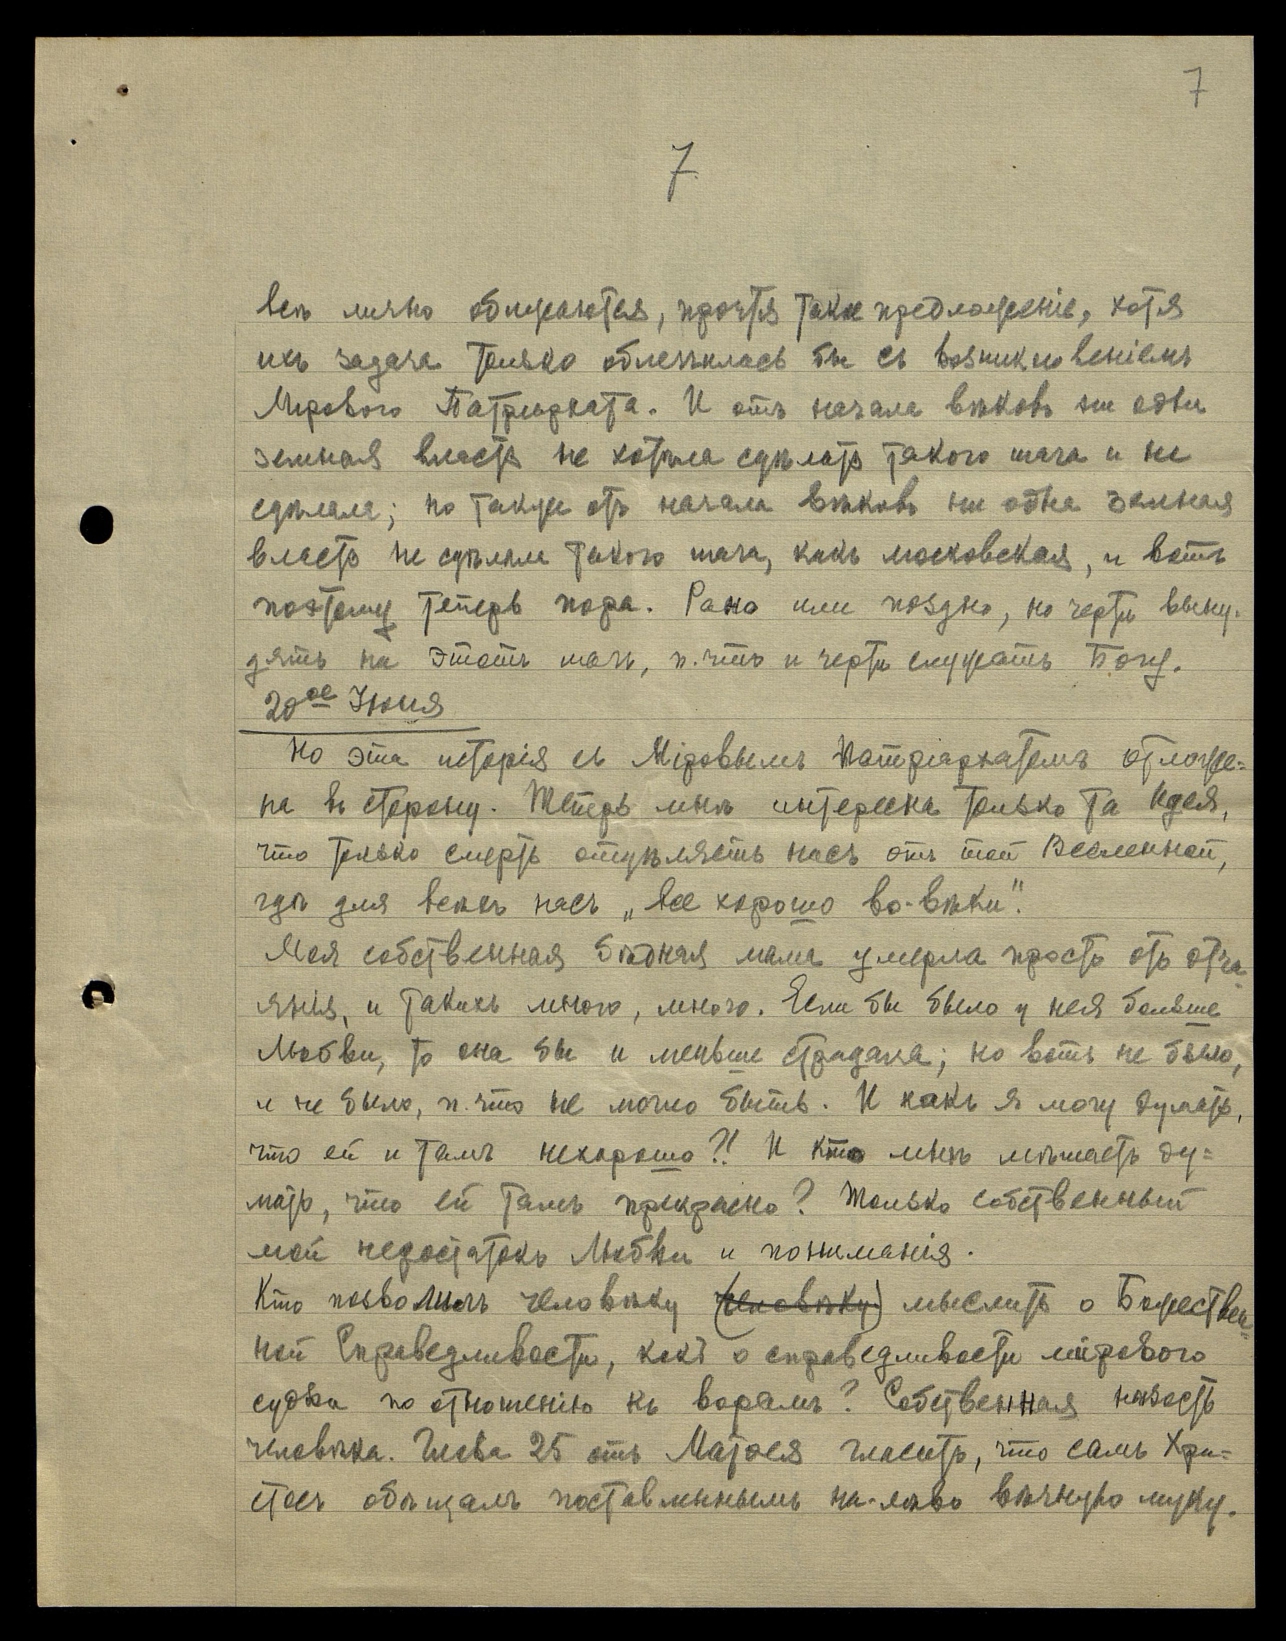 7
7
всѣ лично обижаются, прочтя такое предложеніе, хотя
ихъ задача только облегчилась бы съ возникновеніемъ
Мірового Патріархата. И отъ начала вѣковъ ни одна
земная власть не хотѣла сдѣлать такого шага и не
сдѣлала; но также отъ начала вѣковъ ни одна земная
власть не сдѣлала такого шага, какъ московская, и вотъ
поэтому теперь пора. Рано или поздно, но черти выну-
дятъ на этотъ шагъ, п.что и черти служатъ Богу.
20ое Июня
Но эта исторія съ Міровымъ Патріархатомъ отложе=
на въ сторону. Теперь мнѣ интересна только та идея,
что только смерть отдѣляетъ насъ отъ той Вселенной,
гдѣ для всѣхъ насъ „все хорошо во-вѣки".
Моя собственная бѣдная мама умерла просто отъ отча-
янія, и такихъ много, много. Если бы было у нея больше
Любви, то она бы и меньше страдала; но вотъ не было,
и не было, п.что не могло быть. И какъ я могу думать,
что ей и тамъ нехорошо?! И кто мнѣ мѣшаетъ ду=
мать, что ей тамъ прекрасно? Только собственный
мой недостатокъ Любви и пониманія.
Кто позволилъ человѣку (человѣку) мыслить о Божествен=
ной Справедливости, какъ о справедливости мірового
судьи по отношенію къ ворамъ? Собственная низость
человѣка. Глава 25 отъ Матѳея гласитъ, что самъ Хри=
стосъ обѣщалъ поставленнымъ на-лѣво вѣчную муку.